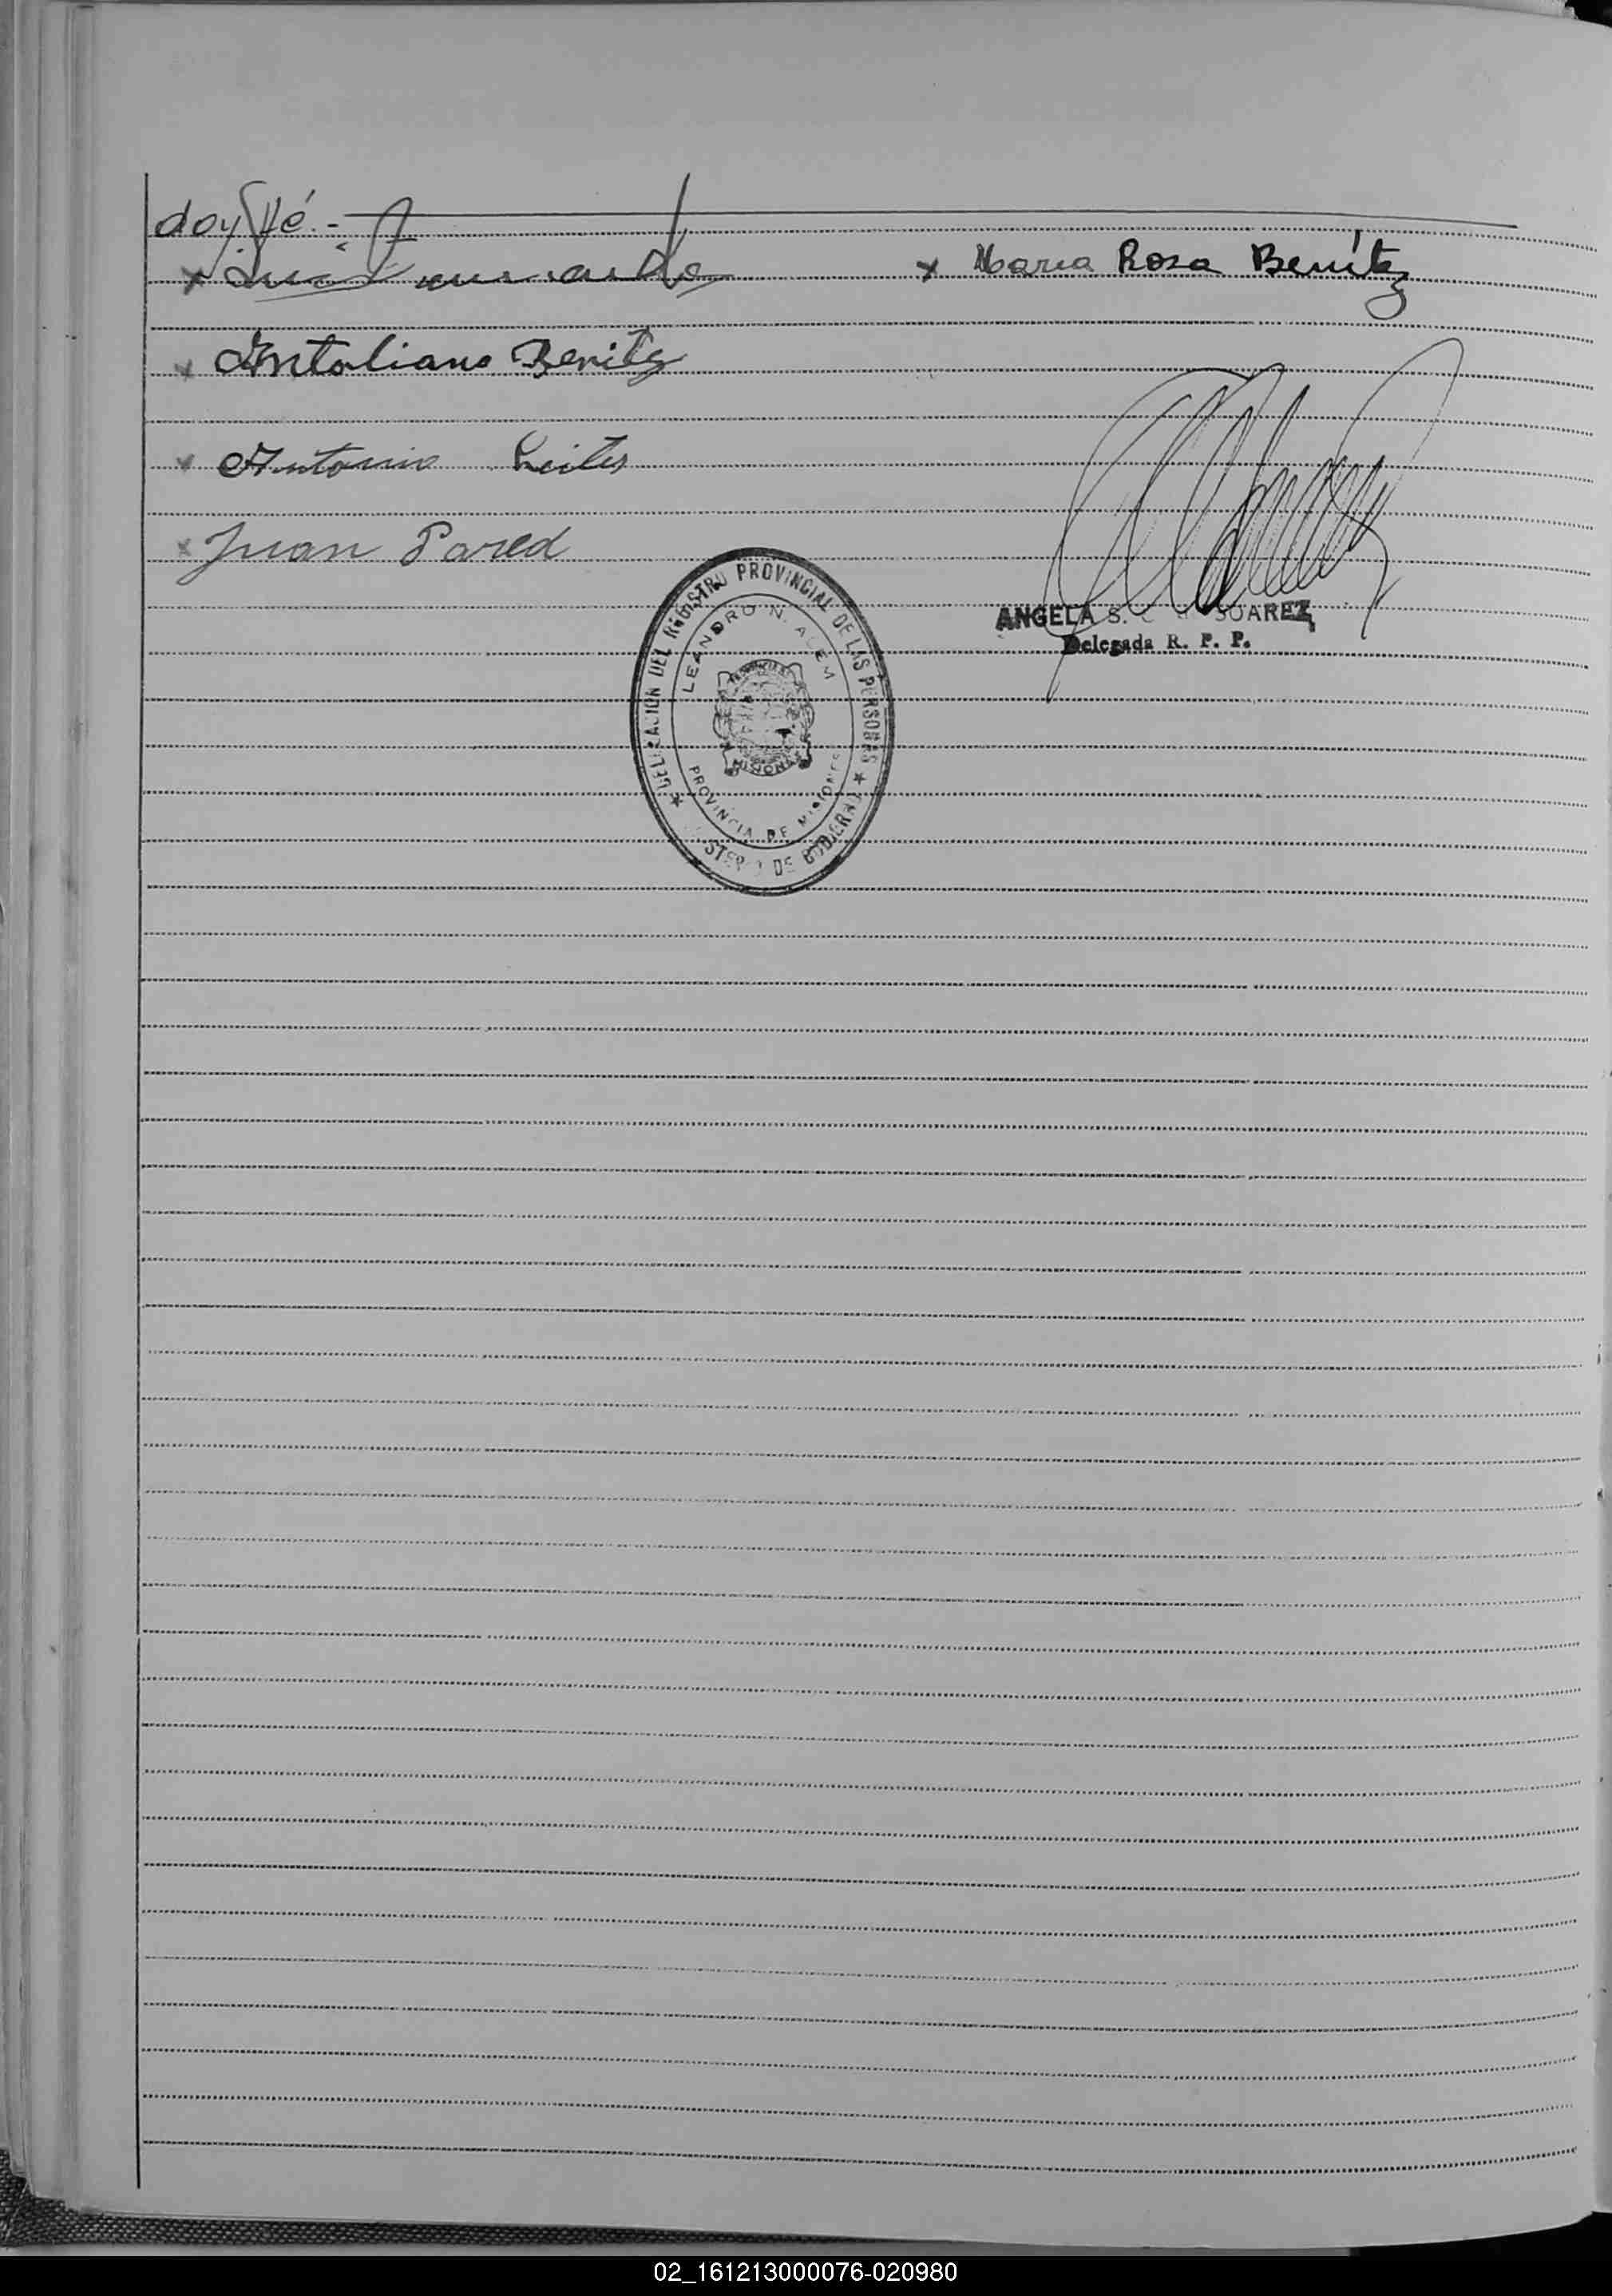 doy fé.-
x Maria Rosa Benítez
x Antoliano Benitez
x Antonio Leites
x Juan Pared
ANGELA S. SUAREZ
Delegada R. P. P.
DELEGACION DEL REGISTRO PROVINCIAL DE LAS PERSONAS
LEANDRO N. ALEM
MISIONES
PROVINCIA DE MISIONES
MINISTERIO DE GOBIERNO
02_161213000076-020980